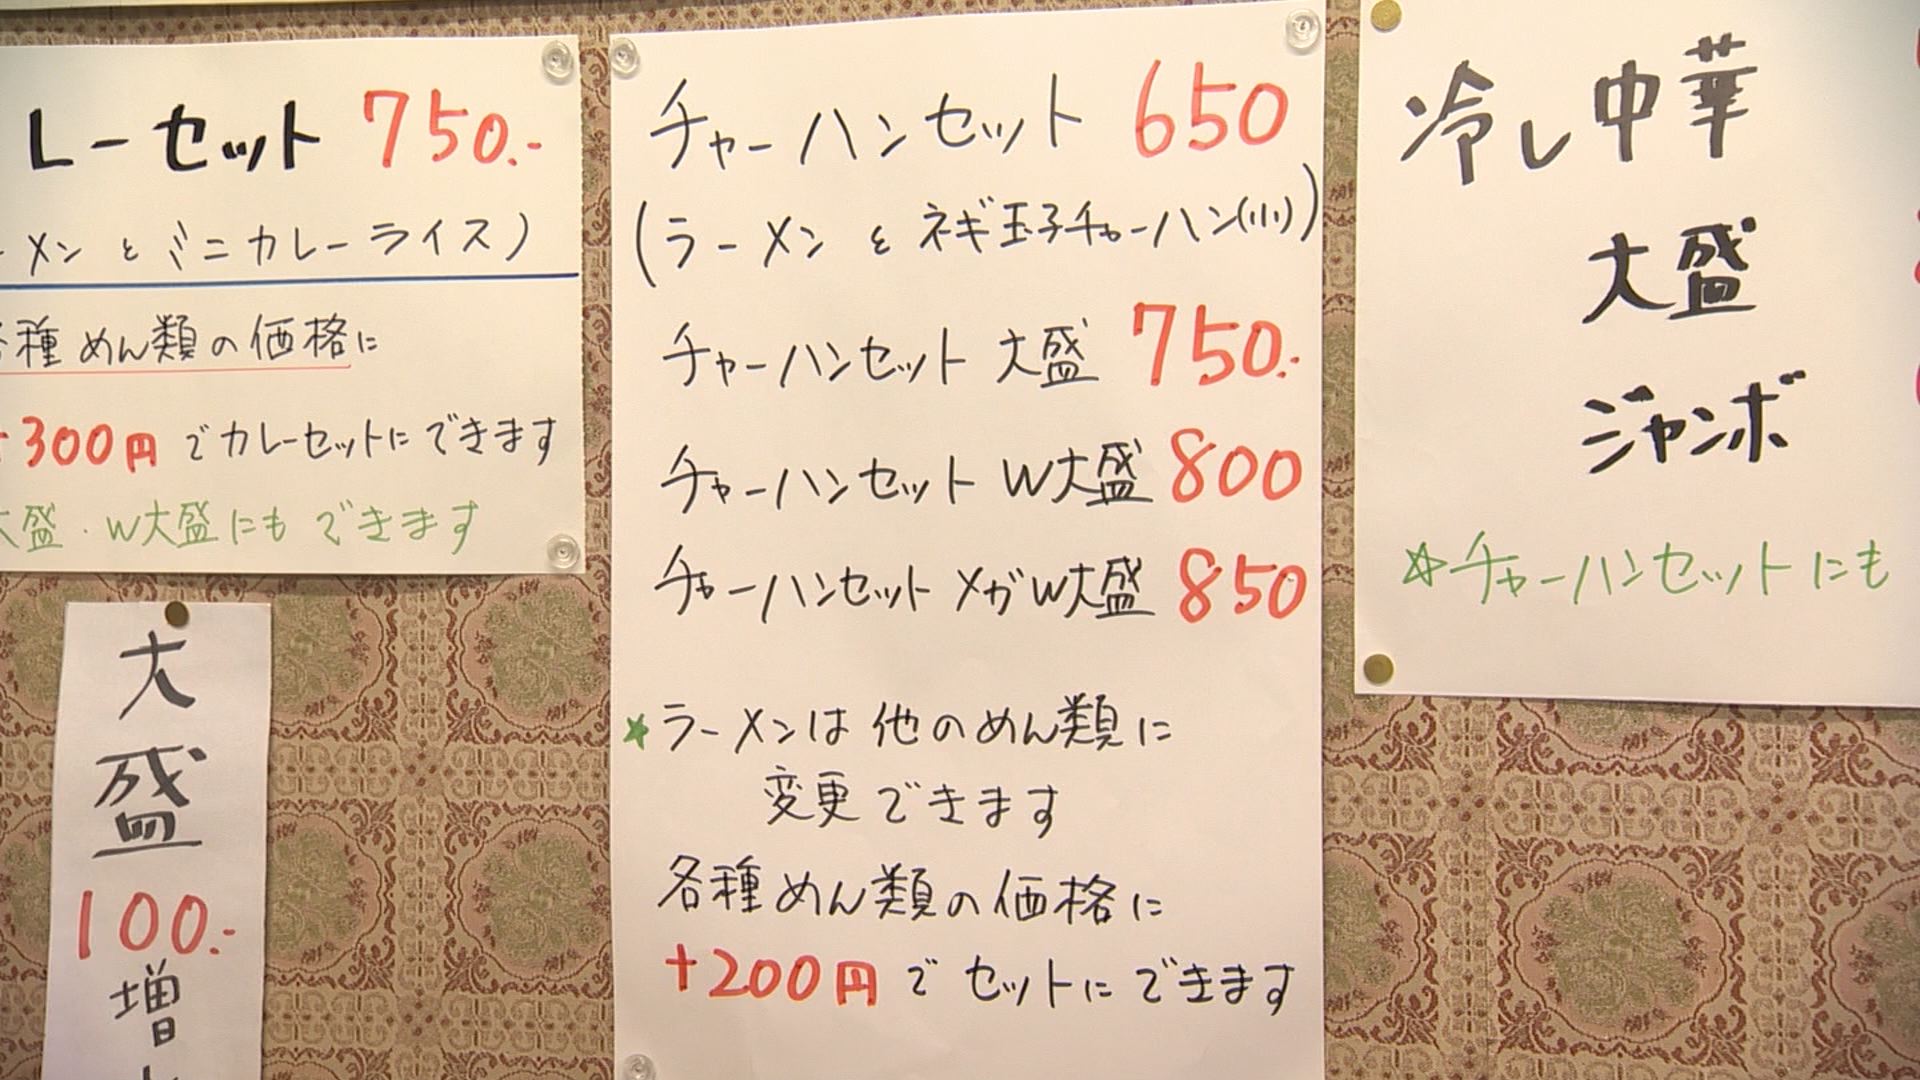 レーセット 750.-
ーメンとミニカレーライス)
各種めん類の価格に
+300円でカレーセットにできます
大盛・W大盛にもできます
大盛
100.-
増し
チャーハンセット 650
(ラーメンとネギ玉子チャーハン(小))
チャーハンセット 大盛 750.-
チャーハンセット W大盛 800
チャーハンセット メガW大盛 850
★ラーメンは他のめん類に
変更できます
各種めん類の価格に
+200円でセットにできます
冷し中華
大盛
ジャンボ
☆チャーハンセットにも